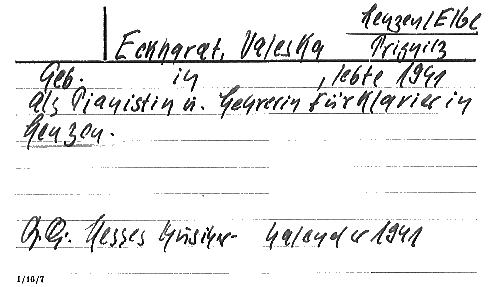 Lenzen/Elbe
Eckhardt, Valeska Prignitz
Geb. in , lebte 1941
als Pianistin u. Lehrerin für Klavier in
Lenzen.
Hesses Musiker-Kalender 1941
1/16/7